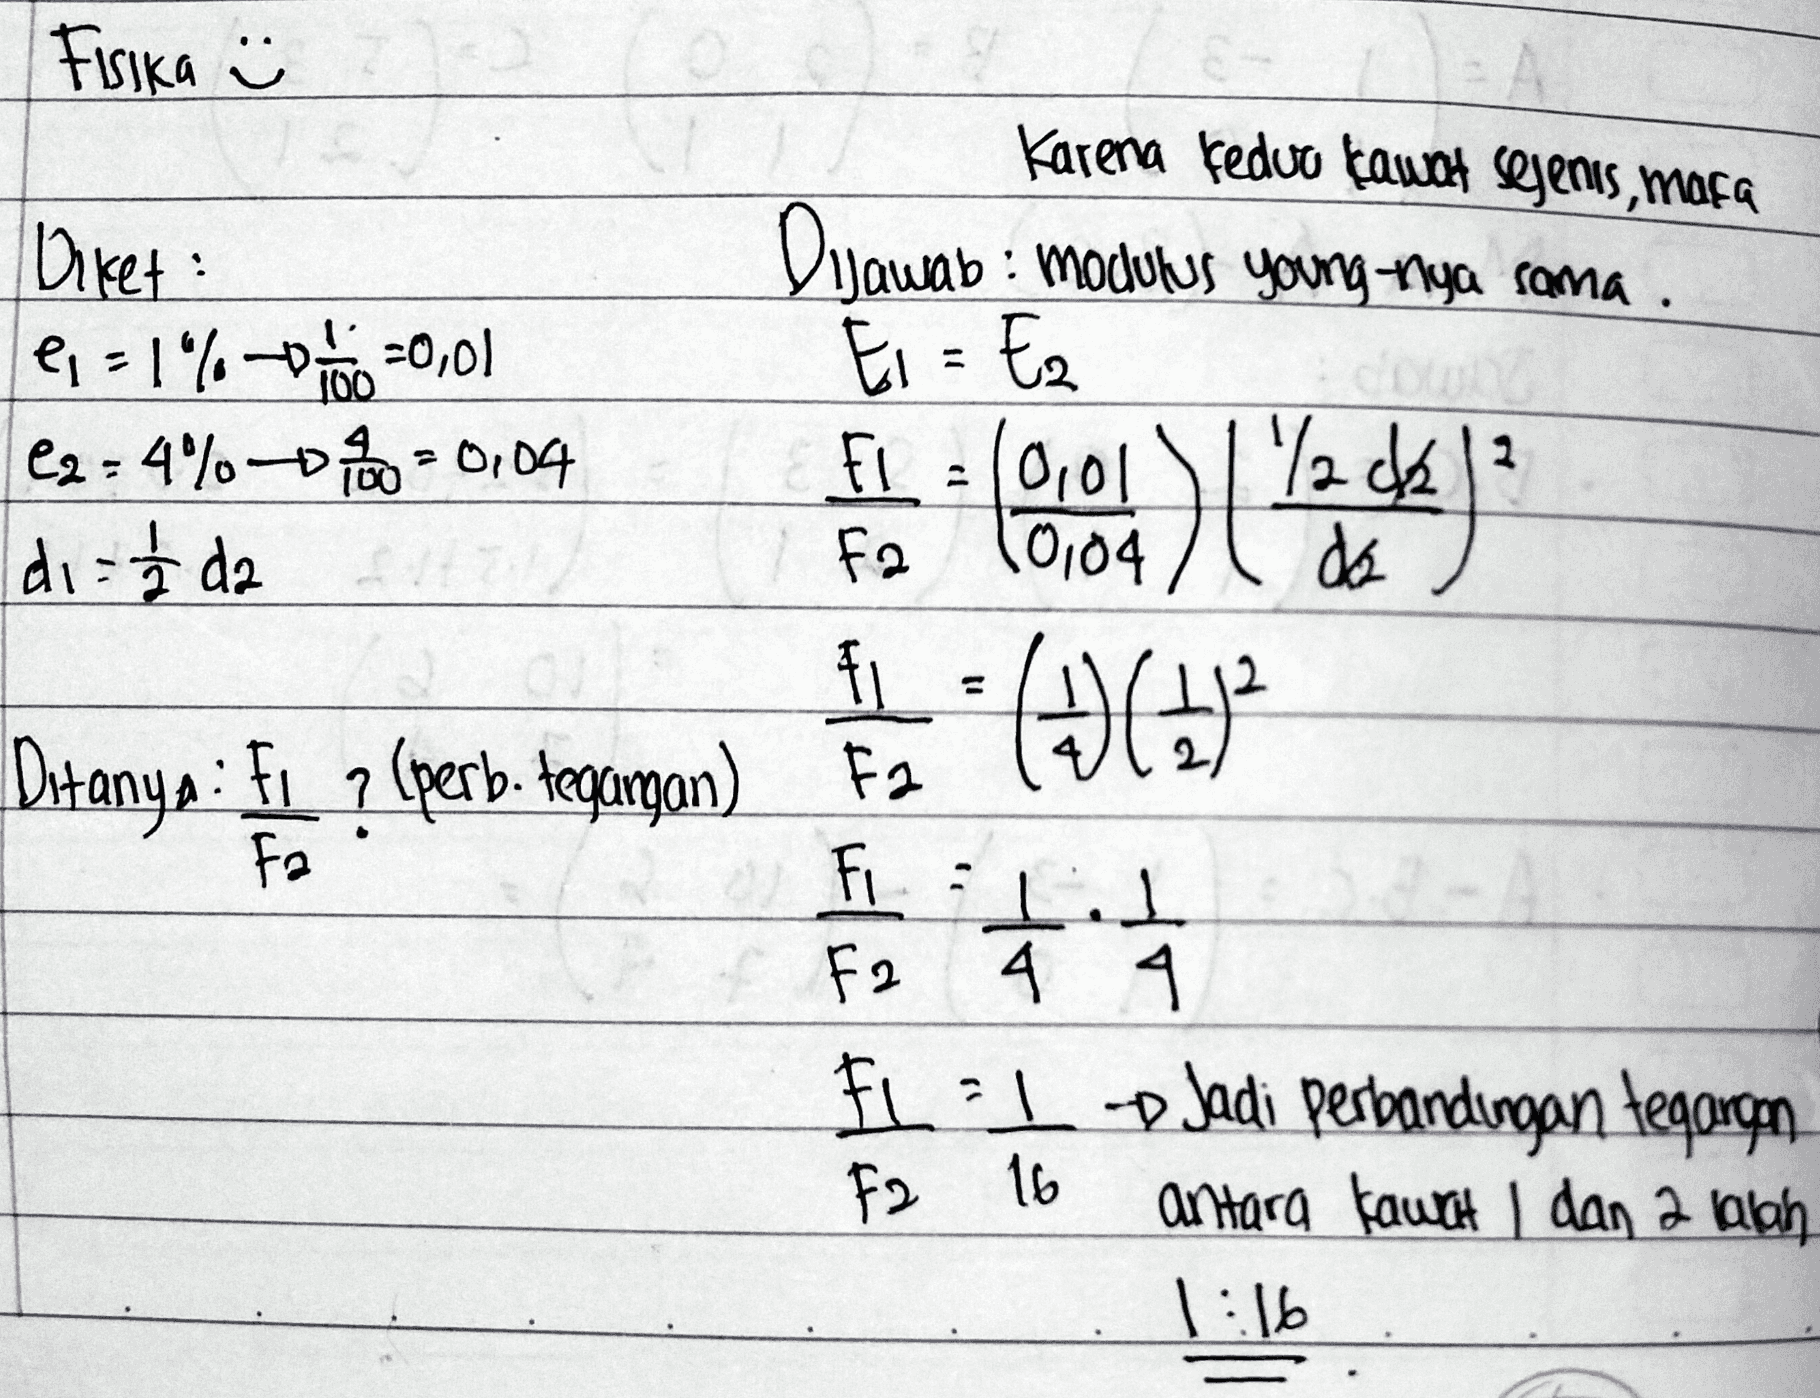 Fisika :)
Diket :
e1 = 1% → 1/100 = 0,01
e2 = 4% → 4/100 = 0,04
d1 = 1/2 d2
Ditanya : F1/F2 ? (perb. tegangan)
Karena kedua kawat sejenis, maka
Dijawab : modulus young-nya sama .
E1 = E2
F1/F2 = (0,01/0,04) (1/2 d2/d2)²
F1/F2 = (1/4) (1/2)²
F1/F2 = 1/4 . 1/4
F1/F2 = 1/16 → Jadi perbandingan tegangan
antara kawat 1 dan 2 ialah
1 : 16